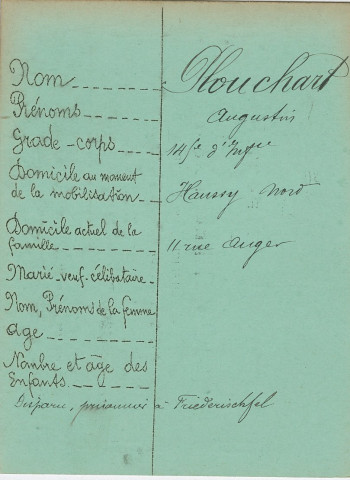 Nom Plouchart
Prénoms Augustin
Grade-corps 145e d'Infrie
Domicile au moment
de la mobilisation Haussy Nord
Domicile actuel de la
famille 11 rue Auger
Marié-veuf-célibataire
Nom, Prénoms de la femme
age
Nombre et âge des
Enfants
Disparu, prisonnier à Friederichfel